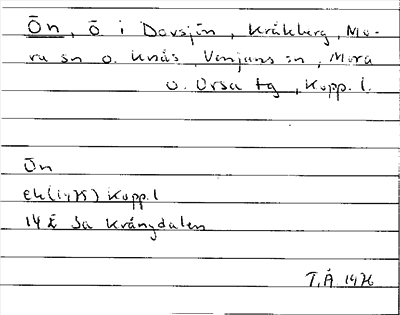 Ön, ö i Davsjön, Kråkberg, Mo-
ra sn o. Knås, Venjans sn, Mora
o. Orsa tg, Kopp. l.
Ön
ek (1975) Kopp. l
14 E 3a Krångdalen
T.Å 1976